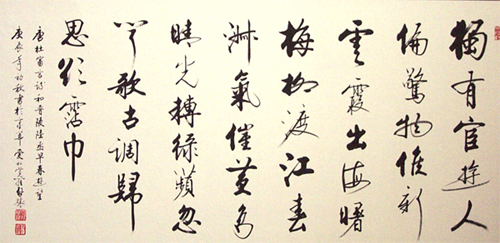 獨有宦遊人
偏驚物候新
雲霞出海曙
梅柳渡江春
淑氣催黃鳥
晴光轉綠蘋忽
聞歌古調歸
思欲霑巾
唐杜審言詩和晉陵陸丞早春遊望
庚辰年初秋書於